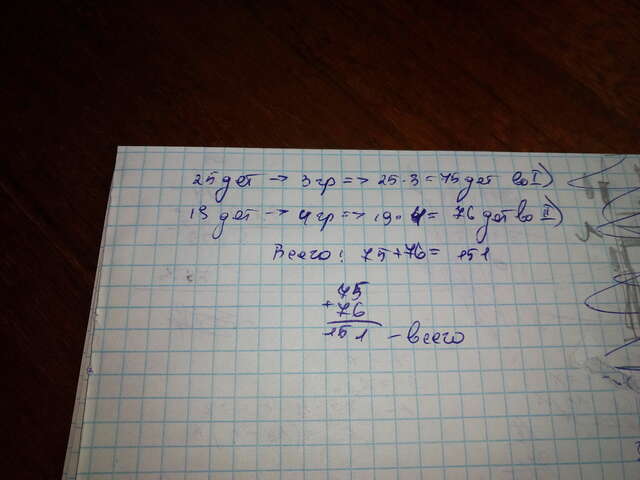 25 дет → 3 гр => 25 · 3 = 75 дет во I)
19 дет → 4 гр => 19 · 4 = 76 дет во II)
Всего: 75 + 76 = 151
75
+
76
151 - всего